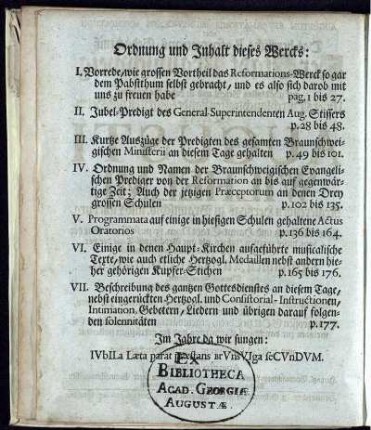 Ordnung und Inhalt dieses Wercks:
I. Vorrede, wie grossen Vortheil das Reformations-Werck so gar
dem Pabstthum selbst gebracht, und es also sich darob mit
uns zu freuen habe pag. 1 bis 27.
II. Jubel-Predigt des General-Superintendenten Aug. Stissers
p. 28 bis 48.
III. Kurtze Auszüge der Predigten des gesamten Braunschwei-
gischen Ministerii an diesem Tage gehalten p. 49 bis 101.
IV. Ordnung und Namen der Braunschweigischen Evangeli-
schen Prediger von der Reformation an bis auf gegenwär-
tige Zeit; Auch der jetzigen Præceptorum an denen Drey
grossen Schulen p. 102 bis 135.
V. Programmata auf einige in hiesigen Schulen gehaltene Actus
Oratorios p. 136 bis 164.
VI. Einige in denen Haupt-Kirchen aufgeführte musicalische
Texte, wie auch etliche Hertzogl. Medaillen nebst andern hie-
her gehörigen Kupfer-Stichen p. 165 bis 176.
VII. Beschreibung des gantzen Gottesdienstes an diesem Tage,
nebst eingerückten Hertzogl. und Consistorial-Instructionen,
Intimation, Gebetern, Liedern und übrigen darauf folgen-
den solennitäten p. 177.
Im Jahre da wir sungen:
IVbILa Læta parat præstans
EX
BIBLIOTHECA
ACAD. GEORGIÆ
AUGUSTÆ.